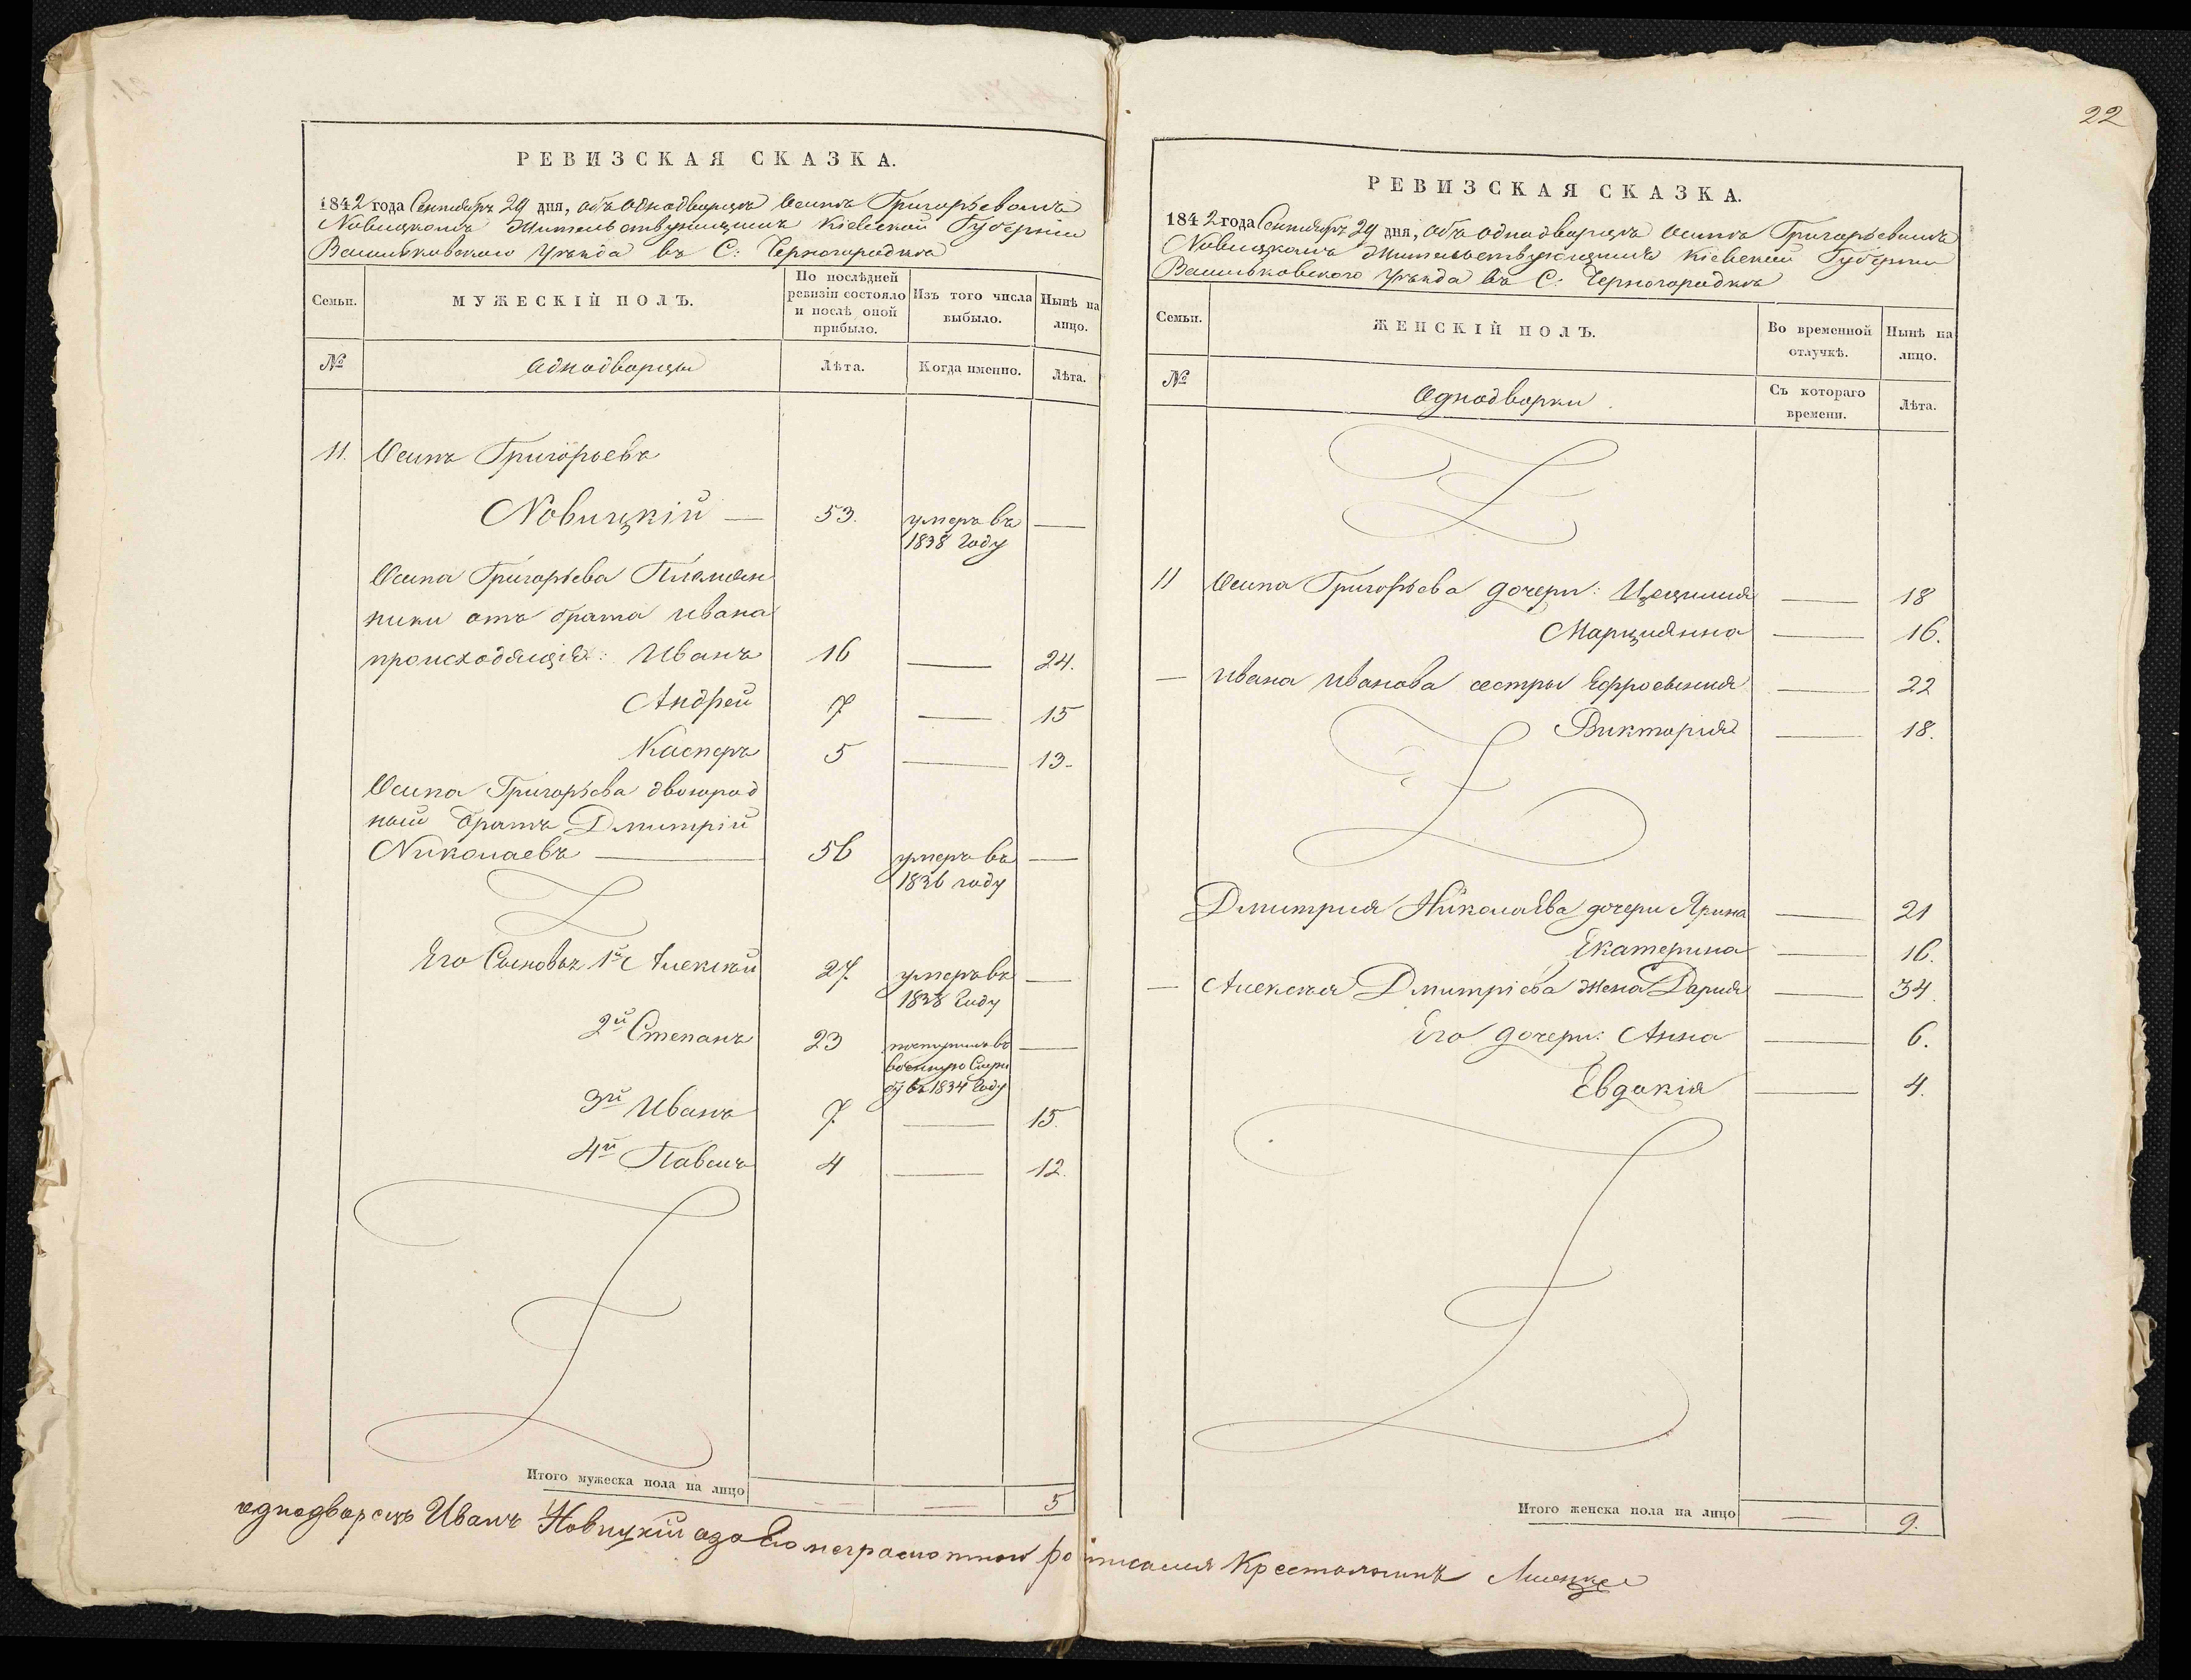 22
РЕВИЗСКАЯ СКАЗКА.
1842 года Сентября 29 дня, объ однодворцѣ Осипѣ Григорьевомъ
Новицкомъ жительствующемъ Кіевской Губерніи
Васильковского уѣзда въ С: Черногородкѣ
Семьи.
МУЖЕСКІЙ ПОЛЪ.
По послѣдней
ревизіи состояло
и послѣ оной
прибыло.
Изъ того числа
выбыло.
Нынѣ на
лицо.
№
Однодворцы
Лѣта.
Когда именно.
Лѣта.
11. Осипъ Григорьевъ
Новицкій — 53. умеръ въ —
1838 году
Осипа Григорьева Племян
ники отъ брата Ивана
происходящія: Иванъ 16 — 24.
Андрей 7 — 15
Касперъ 5 — 13.
Осипа Григорьева двоюрод
ный братъ Дмитрій
Николаевъ — 56 умеръ въ —
1836 году
Его Сыновья 1й Алексѣй 27. умеръ въ —
1838 году
2й Степанъ 23 поступилъ въ —
военную Служ
бу въ 1834 году
3й Иванъ 7. — 15.
4й Павелъ 4 — 12.
Итого мужеска пола на лицо — — 5
РЕВИЗСКАЯ СКАЗКА.
1842 года Сентября 29 дня, объ однодворцѣ Осипѣ Григорьевымъ
Новицкомъ жительствующимъ Кіевской Губерніи
Васильковского уѣзда въ С: Черногородкѣ
Семьи.
ЖЕНСКІЙ ПОЛЪ.
Во временной
отлучкѣ.
Нынѣ на
лицо.
№
Однодворки.
Съ котораго
времени.
Лѣта.
11 Осипа Григорьева дочери: Цецилия — 18
Марциянна — 16.
— Ивана Иванова сестры Ефросиния — 22
Виктория — 18.
Дмитрия Николаева дочери Ярина — 21
Екатерина — 16.
— Алексея Дмитріева жена Дария — 34.
Его дочери: Анна — 6.
Евдокія — 4.
Итого женска пола на лицо — 9.
однодворецъ Иванъ Новицкій а за его неграмотного росписался Крестьянинъ